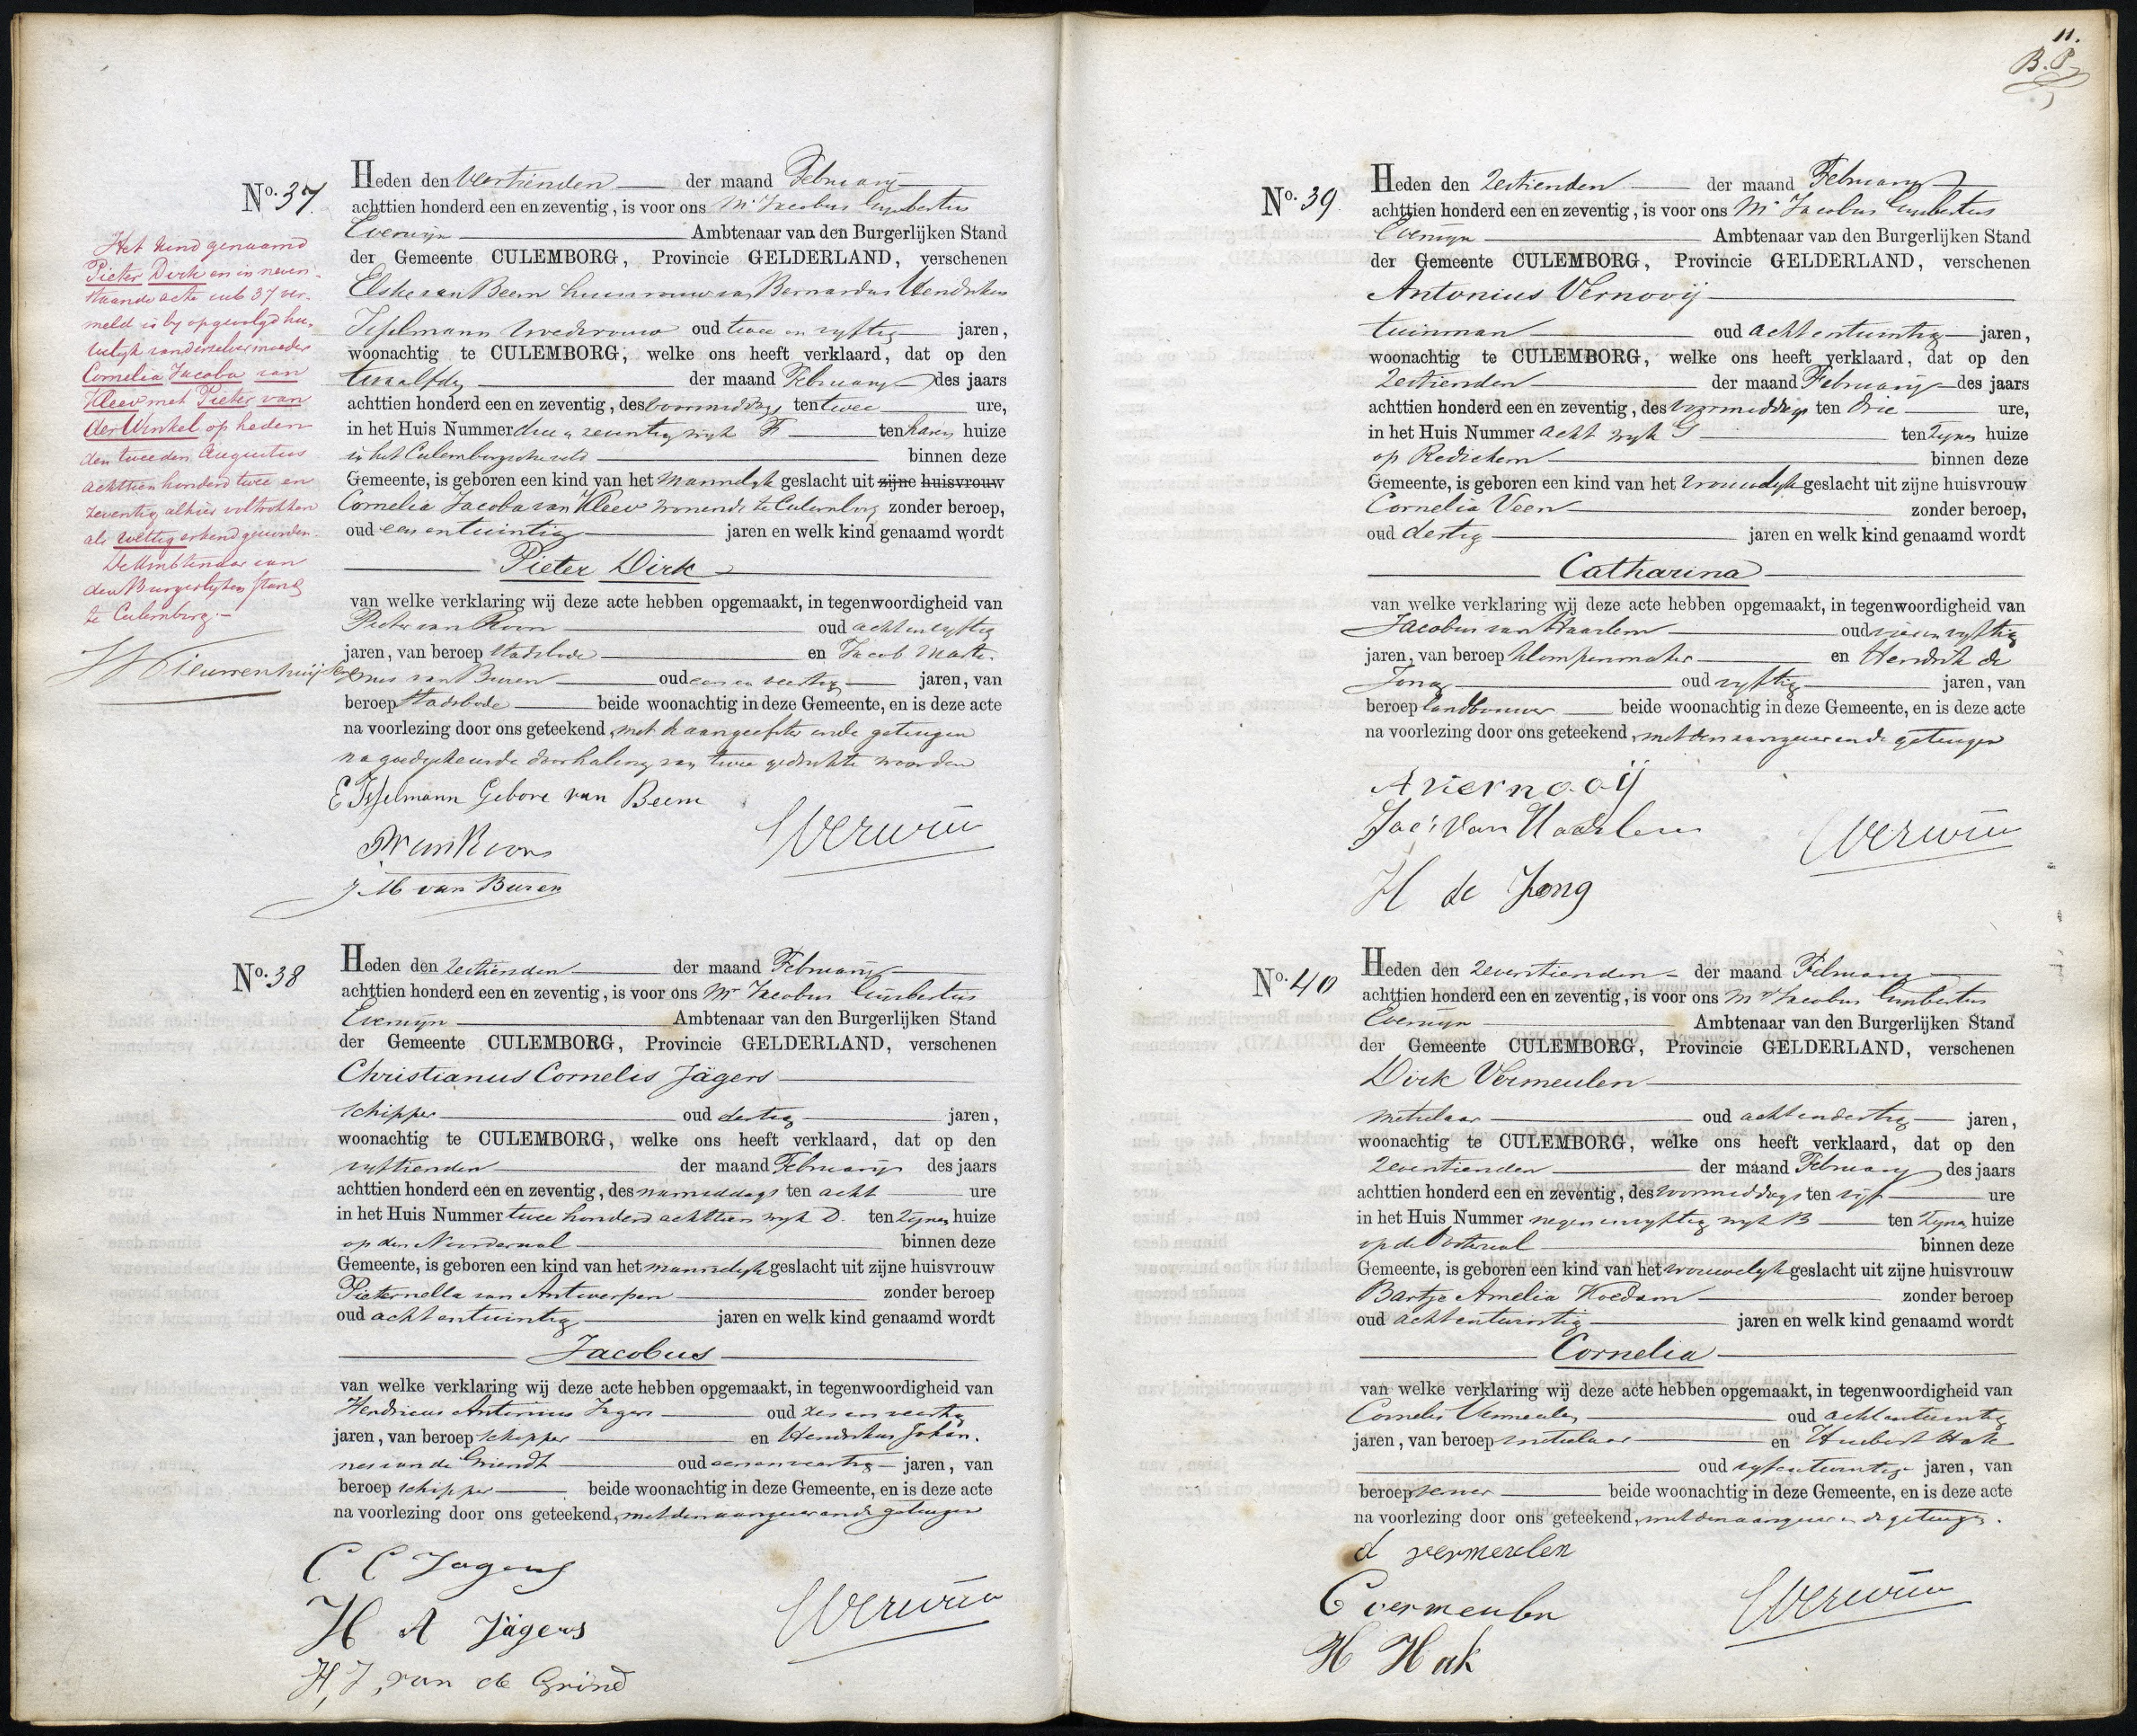 No. 37.
Heden den veertienden der maand Februarij
achttien honderd een en zeventig, is voor ons Mr Jacobus Gijsbertus
Everwijn Ambtenaar van den Burgerlijken Stand
der Gemeente CULEMBORG, Provincie GELDERLAND, verschenen
Elske van Beem huisvrouw van Bernardus Hendrikus
Isselmann vroedvrouw oud twee en vyftig jaren,
woonachtig te CULEMBORG, welke ons heeft verklaard, dat op den
twaalfden der maand Februarij des jaars
achttien honderd een en zeventig, des voormiddags ten twee ure,
in het Huis Nummer drie en zeventig wyk F ten haren huize
in het Culemborgsche veld binnen deze
Gemeente, is geboren een kind van het mannelyk geslacht uit zijne huisvrouw
Cornelia Jacoba van Kleef wonende te Culemborg zonder beroep,
oud een en twintig jaren en welk kind genaamd wordt
Pieter Dirk
van welke verklaring wij deze acte hebben opgemaakt, in tegenwoordigheid van
Pieter van Roon oud acht en vyftig
jaren, van beroep stadsbode en Jacob Marti-
nus van Buren oud een en veertig jaren, van
beroep stadsbode beide woonachtig in deze Gemeente, en is deze acte
na voorlezing door ons geteekend, met de aangeefster en de getuigen
na goedgekeurde doorhaling van twee gedrukte woorden
E Isselmann Gebore van Beem
P van Roon
Everwijn
J. M. van Buren
Het kind genaamd
Pieter Dirk en in neven-
staande acte sub 37 ver-
meld is by opgevolgd hu-
welyk van deszelver moeder
Cornelia Jacoba van
Kleef met Pieter van
der Winkel op heden
den tweeden Augustus
achttien honderd twee en
zeventig alhier voltrokken
als wettig erkend geworden.
De Ambtenaar van
den Burgerlyken stand
te Culemborg.-
Nieuwenhuijsen
No. 38
Heden den zestienden der maand Februarij
achttien honderd een en zeventig, is voor ons Mr Jacobus Gijsbertus
Everwijn Ambtenaar van den Burgerlijken Stand
der Gemeente CULEMBORG, Provincie GELDERLAND, verschenen
Christianus Cornelis Jägers
schipper oud dertig jaren,
woonachtig te CULEMBORG, welke ons heeft verklaard, dat op den
vyftienden der maand Februarij des jaars
achttien honderd een en zeventig, des namiddags ten acht ure
in het Huis Nummer twee honderd achttien wyk D. ten zijnen huize
op den Noorderwal binnen deze
Gemeente, is geboren een kind van het mannelyk geslacht uit zijne huisvrouw
Pieternella van Antwerpen zonder beroep
oud acht en twintig jaren en welk kind genaamd wordt
Jacobus
van welke verklaring wij deze acte hebben opgemaakt, in tegenwoordigheid van
Hendricus Antonius Jagers oud zes en veertig
jaren, van beroep schipper en Hendrikus Johan-
nes van de Griendt oud een en veertig jaren, van
beroep schipper beide woonachtig in deze Gemeente, en is deze acte
na voorlezing door ons geteekend, met den aangever en de getuigen
C C Jagers
H A Jägers
Everwijn
H, J, van de Grind
11.
B. P.
No. 39
Heden den zestienden der maand Februarij
achttien honderd een en zeventig, is voor ons Mr Jacobus Gijsbertus
Everwijn Ambtenaar van den Burgerlijken Stand
der Gemeente CULEMBORG, Provincie GELDERLAND, verschenen
Antonius Vernooij
tuinman oud acht en twintig jaren,
woonachtig te CULEMBORG, welke ons heeft verklaard, dat op den
zestienden der maand Februarij des jaars
achttien honderd een en zeventig, des voormiddags ten drie ure,
in het Huis Nummer acht wyk G ten zynen huize
op Redichem binnen deze
Gemeente, is geboren een kind van het vrouwelyk geslacht uit zijne huisvrouw
Cornelia Veen zonder beroep,
oud dertig jaren en welk kind genaamd wordt
Catharina
van welke verklaring wij deze acte hebben opgemaakt, in tegenwoordigheid van
Jacobus van Haarlem oud vier en vyftig
jaren, van beroep klompenmaker en Hendrik de
Jong oud vyftig jaren, van
beroep landbouwer beide woonachtig in deze Gemeente, en is deze acte
na voorlezing door ons geteekend, met den aangever en de getuigen
A Vernooij
Jac: van Haarlem
Everwijn
H de Jong
No. 40
Heden den zeventienden der maand Februarij
achttien honderd een en zeventig, is voor ons Mr Jacobus Gijsbertus
Everwijn Ambtenaar van den Burgerlijken Stand
der Gemeente CULEMBORG, Provincie GELDERLAND, verschenen
Dirk Vermeulen
metselaar oud acht en dertig jaren,
woonachtig te CULEMBORG, welke ons heeft verklaard, dat op den
zeventienden der maand Februarij des jaars
achttien honderd een en zeventig, des voormiddags ten vijf ure
in het Huis Nummer negen en vyftig wyk B ten zynen huize
op de Oosterwal binnen deze
Gemeente, is geboren een kind van het vrouwelyk geslacht uit zijne huisvrouw
Bartje Amelia Hoedam zonder beroep
oud acht en twintig jaren en welk kind genaamd wordt
Cornelia
van welke verklaring wij deze acte hebben opgemaakt, in tegenwoordigheid van
Cornelis Vermeulen oud acht en twintig
jaren, van beroep metselaar en Huibert Hak
oud vyf en twintig jaren, van
beroep beide woonachtig in deze Gemeente, en is deze acte
na voorlezing door ons geteekend, met den aangever en de getuigen.
d vermeulen
C vermeulen
Everwijn
H Hak